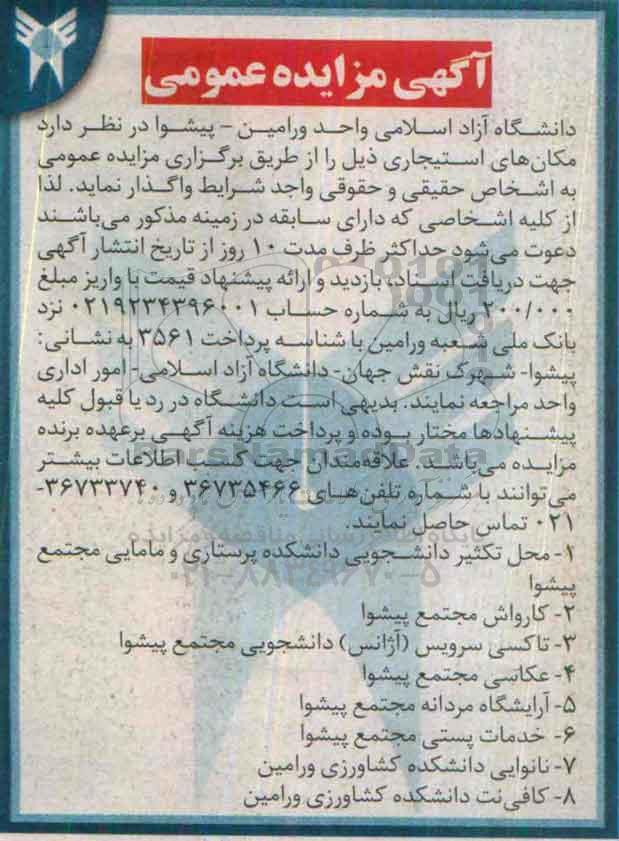 آگهی مزایده عمومی
دانشگاه آزاد اسلامی واحد ورامین – پیشوا در نظر دارد
مکان‌های استیجاری ذیل را از طریق برگزاری مزایده عمومی
به اشخاص حقیقی و حقوقی واجد شرایط واگذار نماید. لذا
از کلیه اشخاصی که دارای سابقه در زمینه مذکور می‌باشند
دعوت می‌شود حداکثر ظرف مدت ۱۰ روز از تاریخ انتشار آگهی
جهت دریافت اسناد، بازدید و ارائه پیشنهاد قیمت با واریز مبلغ
۲۰۰/۰۰۰ ریال به شماره حساب ۰۲۱۹۲۳۴۳۹۶۰۰۱ نزد
بانک ملی شعبه ورامین با شناسه پرداخت ۳۵۶۱ به نشانی:
پیشوا- شهرک نقش جهان- دانشگاه آزاد اسلامی- امور اداری
واحد مراجعه نمایند. بدیهی است دانشگاه در رد یا قبول کلیه
پیشنهادها مختار بوده و پرداخت هزینه آگهی برعهده برنده
مزایده می‌باشد. علاقه‌مندان جهت کسب اطلاعات بیشتر
می‌توانند با شماره تلفن‌های ۳۶۷۳۵۴۶۶ و ۳۶۷۳۳۷۴۰-
۰۲۱ تماس حاصل نمایند.
۱- محل تکثیر دانشجویی دانشکده پرستاری و مامایی مجتمع
پیشوا
۲- کارواش مجتمع پیشوا
۳- تاکسی سرویس (آژانس) دانشجویی مجتمع پیشوا
۴- عکاسی مجتمع پیشوا
۵- آرایشگاه مردانه مجتمع پیشوا
۶- خدمات پستی مجتمع پیشوا
۷- نانوایی دانشکده کشاورزی ورامین
۸- کافی‌نت دانشکده کشاورزی ورامین
ParsNamadData